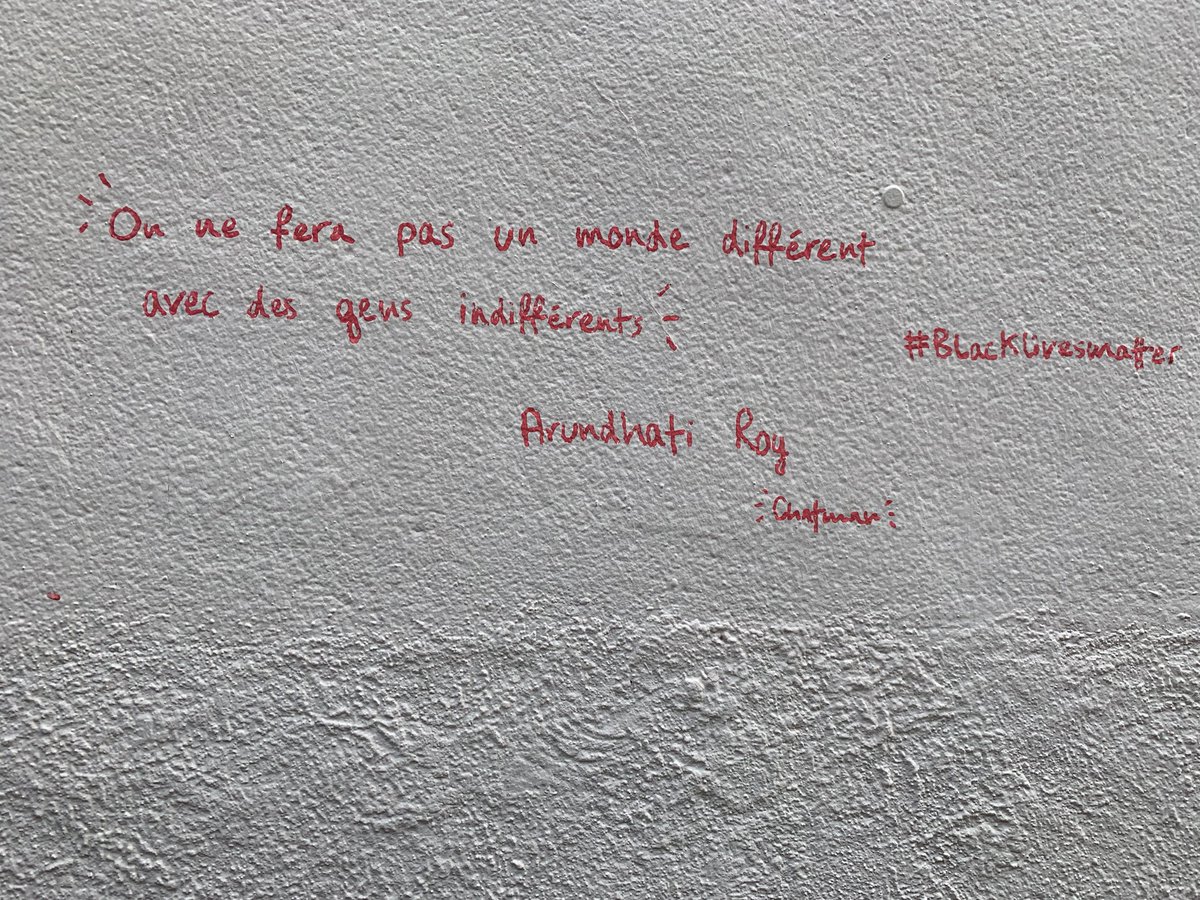 On ne fera pas un monde différent
avec des gens indifférents
#Blacklivesmatter
Arundhati Roy
Chatman